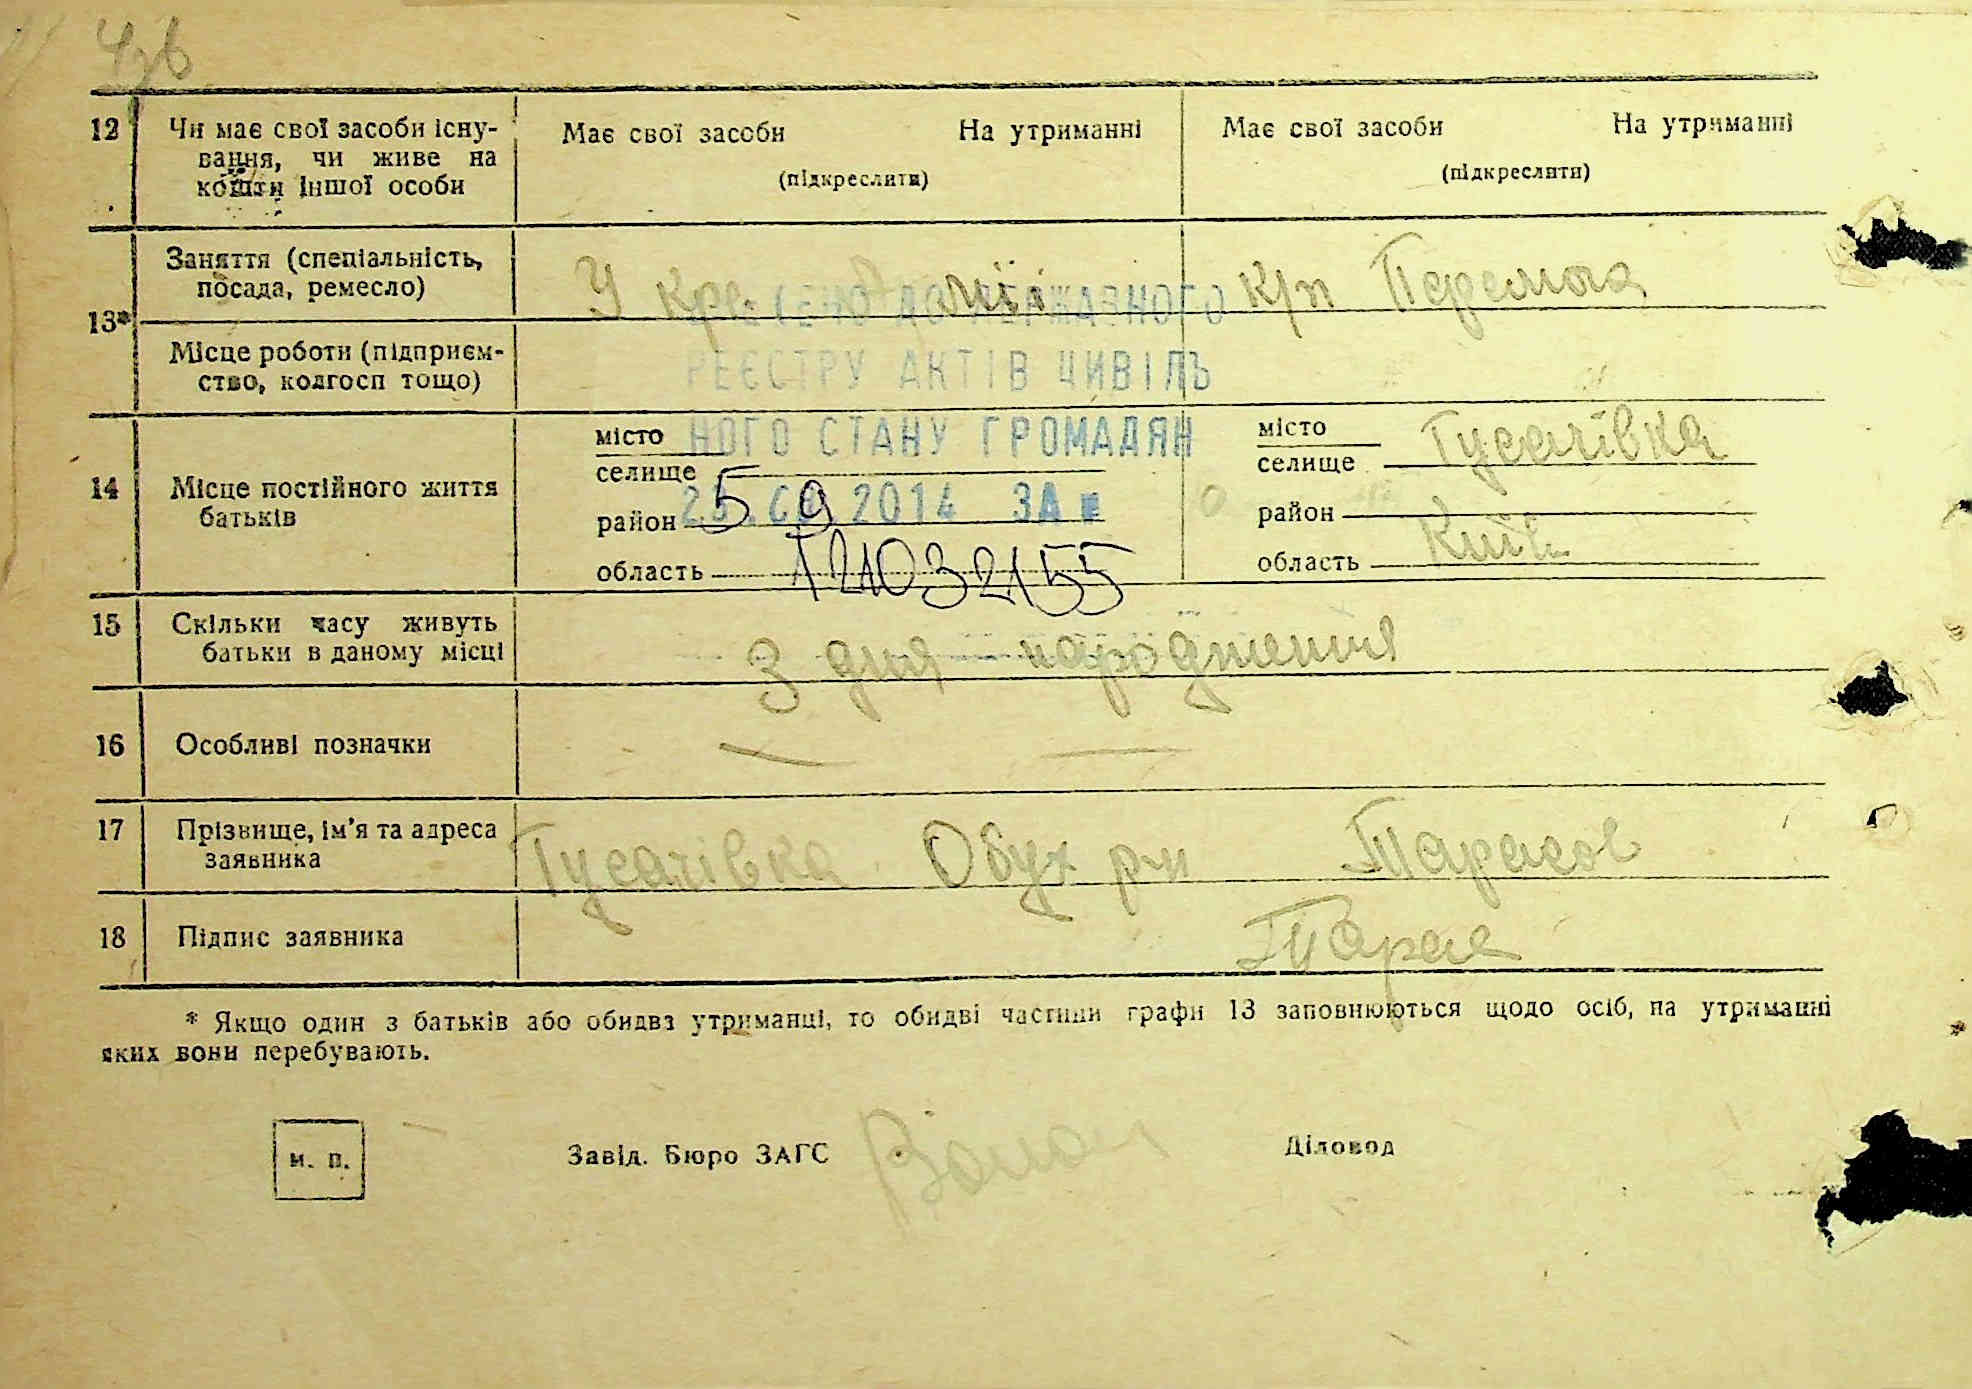 12 Чи має свої засоби існу-
вання, чи живе на
кошти іншої особи
Має свої засоби На утриманні
(підкреслити)
Має свої засоби На утриманні
(підкреслити)
13*
Заняття (спеціальність,
посада, ремесло)
У к/п Перемога
Місце роботи (підприєм-
ство, колгосп тощо)
ДО ДЕРЖАВНОГО
РЕЄСТРУ АКТІВ ЦИВІЛЬ
НОГО СТАНУ ГРОМАДЯН
2014
14 Місце постійного життя
батьків
місто
селище
район
область
місто
селище Гусачівка
район
область Київ
15 Скільки часу живуть
батьки в даному місці
З дня народження
16 Особливі позначки — —
17 Прізвище, ім'я та адреса
заявника
Гусачівка Обух р-н Тарасов
18 Підпис заявника Тарас
* Якщо один з батьків або обидва утриманці, то обидві частини графи 13 заповнюються щодо осіб, на утриманні
яких вони перебувають.
м. п.
Завід. Бюро ЗАГС
Діловод